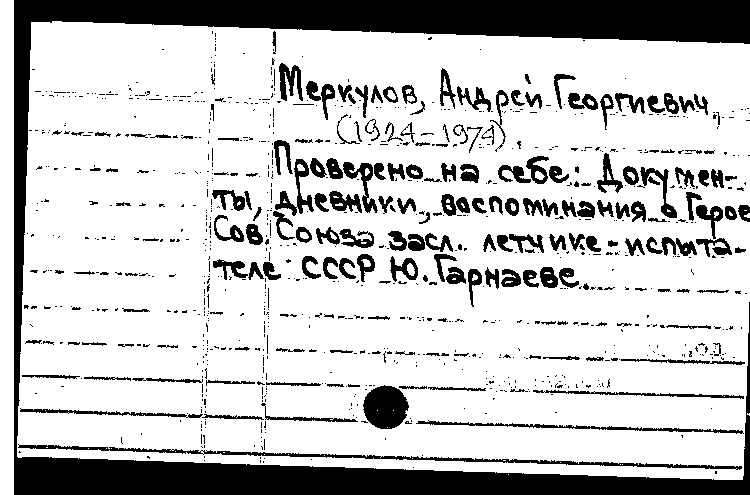 Меркулов, Андрей Георгиевич,
(1924-1974).
Проверено на себе: Докумен-
ты, дневники, воспоминания о Герое
Сов. Союза засл. летчике-испыта-
теле СССР Ю. Гарнаеве.